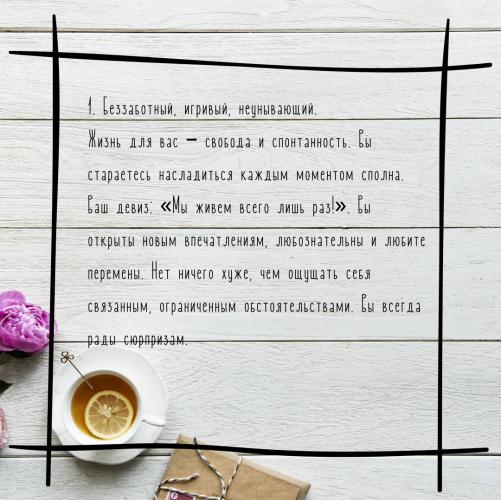 1. Беззаботный, игривый, неунывающий.
Жизнь для вас – свобода и спонтанность. Вы
стараетесь насладиться каждым моментом сполна.
Ваш девиз: «Мы живем всего лишь раз!». Вы
открыты новым впечатлениям, любознательны и любите
перемены. Нет ничего хуже, чем ощущать себя
связанным, ограниченным обстоятельствами. Вы всегда
рады сюрпризам.